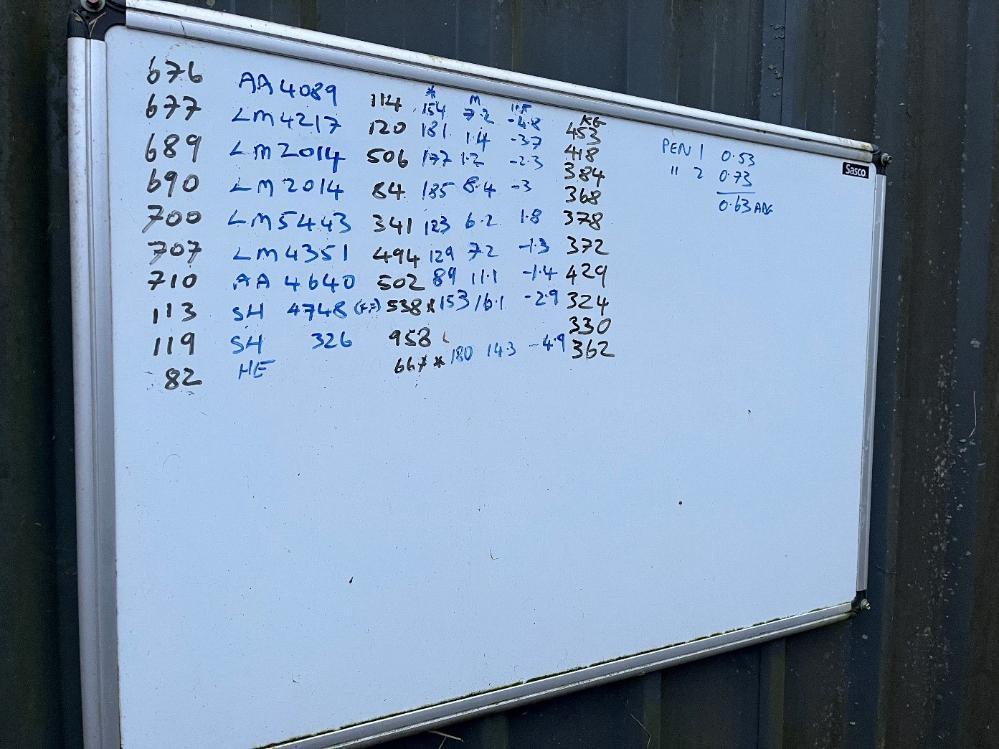 * M KG
676 AA4089 114 154 7.2 -4.8 453
677 LM4217 120 181 1.4 -3.7 418
689 LM2014 506 177 1.2 -2.3 384
690 LM2014 84 185 8.4 -3 368
700 LM5443 341 123 6.2 1.8 378
707 LM4351 494 129 7.2 -1.3 372
710 AA4640 502 89 11.1 -1.4 429
113 SH 4748 538* 153 16.1 -2.9 324
119 SH 326 958 330
82 HE * 180 14.3 -4.9 362
PEN 1 0.53
" 2 0.73
0.63 ADG
Sasco